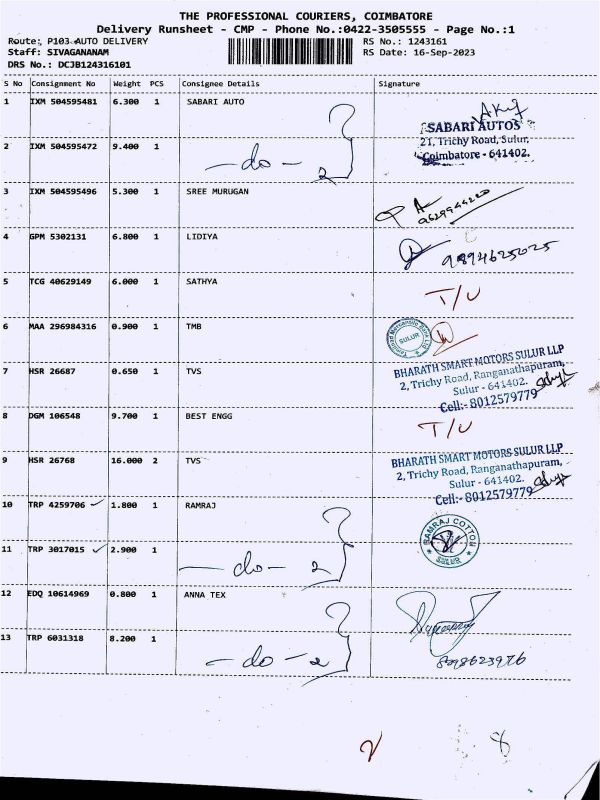 THE PROFESSIONAL COURIERS, COIMBATORE
Delivery Runsheet - CMP - Phone No.:0422-3505555 - Page No.:1
Route: P103-AUTO DELIVERY RS No.: 1243161
Staff: SIVAGANANAM RS Date: 16-Sep-2023
DRS No.: DCJB124316101
S No Consignment No Weight PCS Consignee Details Signature
1 IXM 504595481 6.300 1 SABARI AUTO
SABARI AUTOS
21, Trichy Road, Sulur,
Coimbatore - 641402.
2 IXM 504595472 9.400 1 - do - 2
3 IXM 504595496 5.300 1 SREE MURUGAN
4 GPM 5302131 6.800 1 LIDIYA 9894625025
5 TCG 40629149 6.000 1 SATHYA T/U
6 MAA 296984316 0.900 1 TMB SULUR
7 HSR 26687 0.650 1 TVS
BHARATH SMART MOTORS SULUR LLP
2, Trichy Road, Ranganathapuram,
Sulur - 641402.
Cell:- 8012579779
8 DGM 106548 9.700 1 BEST ENGG T/U
9 HSR 26768 16.000 2 TVS
BHARATH SMART MOTORS SULUR LLP
2, Trichy Road, Ranganathapuram,
Sulur - 641402.
Cell:- 8012579779
10 TRP 4259706 1.800 1 RAMRAJ
RAMRAJ COTTON
SULUR
11 TRP 3017015 2.900 1 - do - 2
12 EDQ 10614969 0.800 1 ANNA TEX
13 TRP 6031318 8.200 1 - do - 2
8